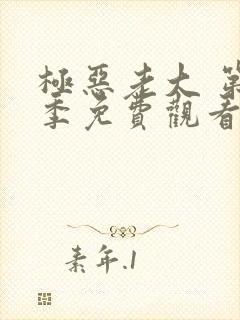 極惡老大 第
季免費觀看
素年.1